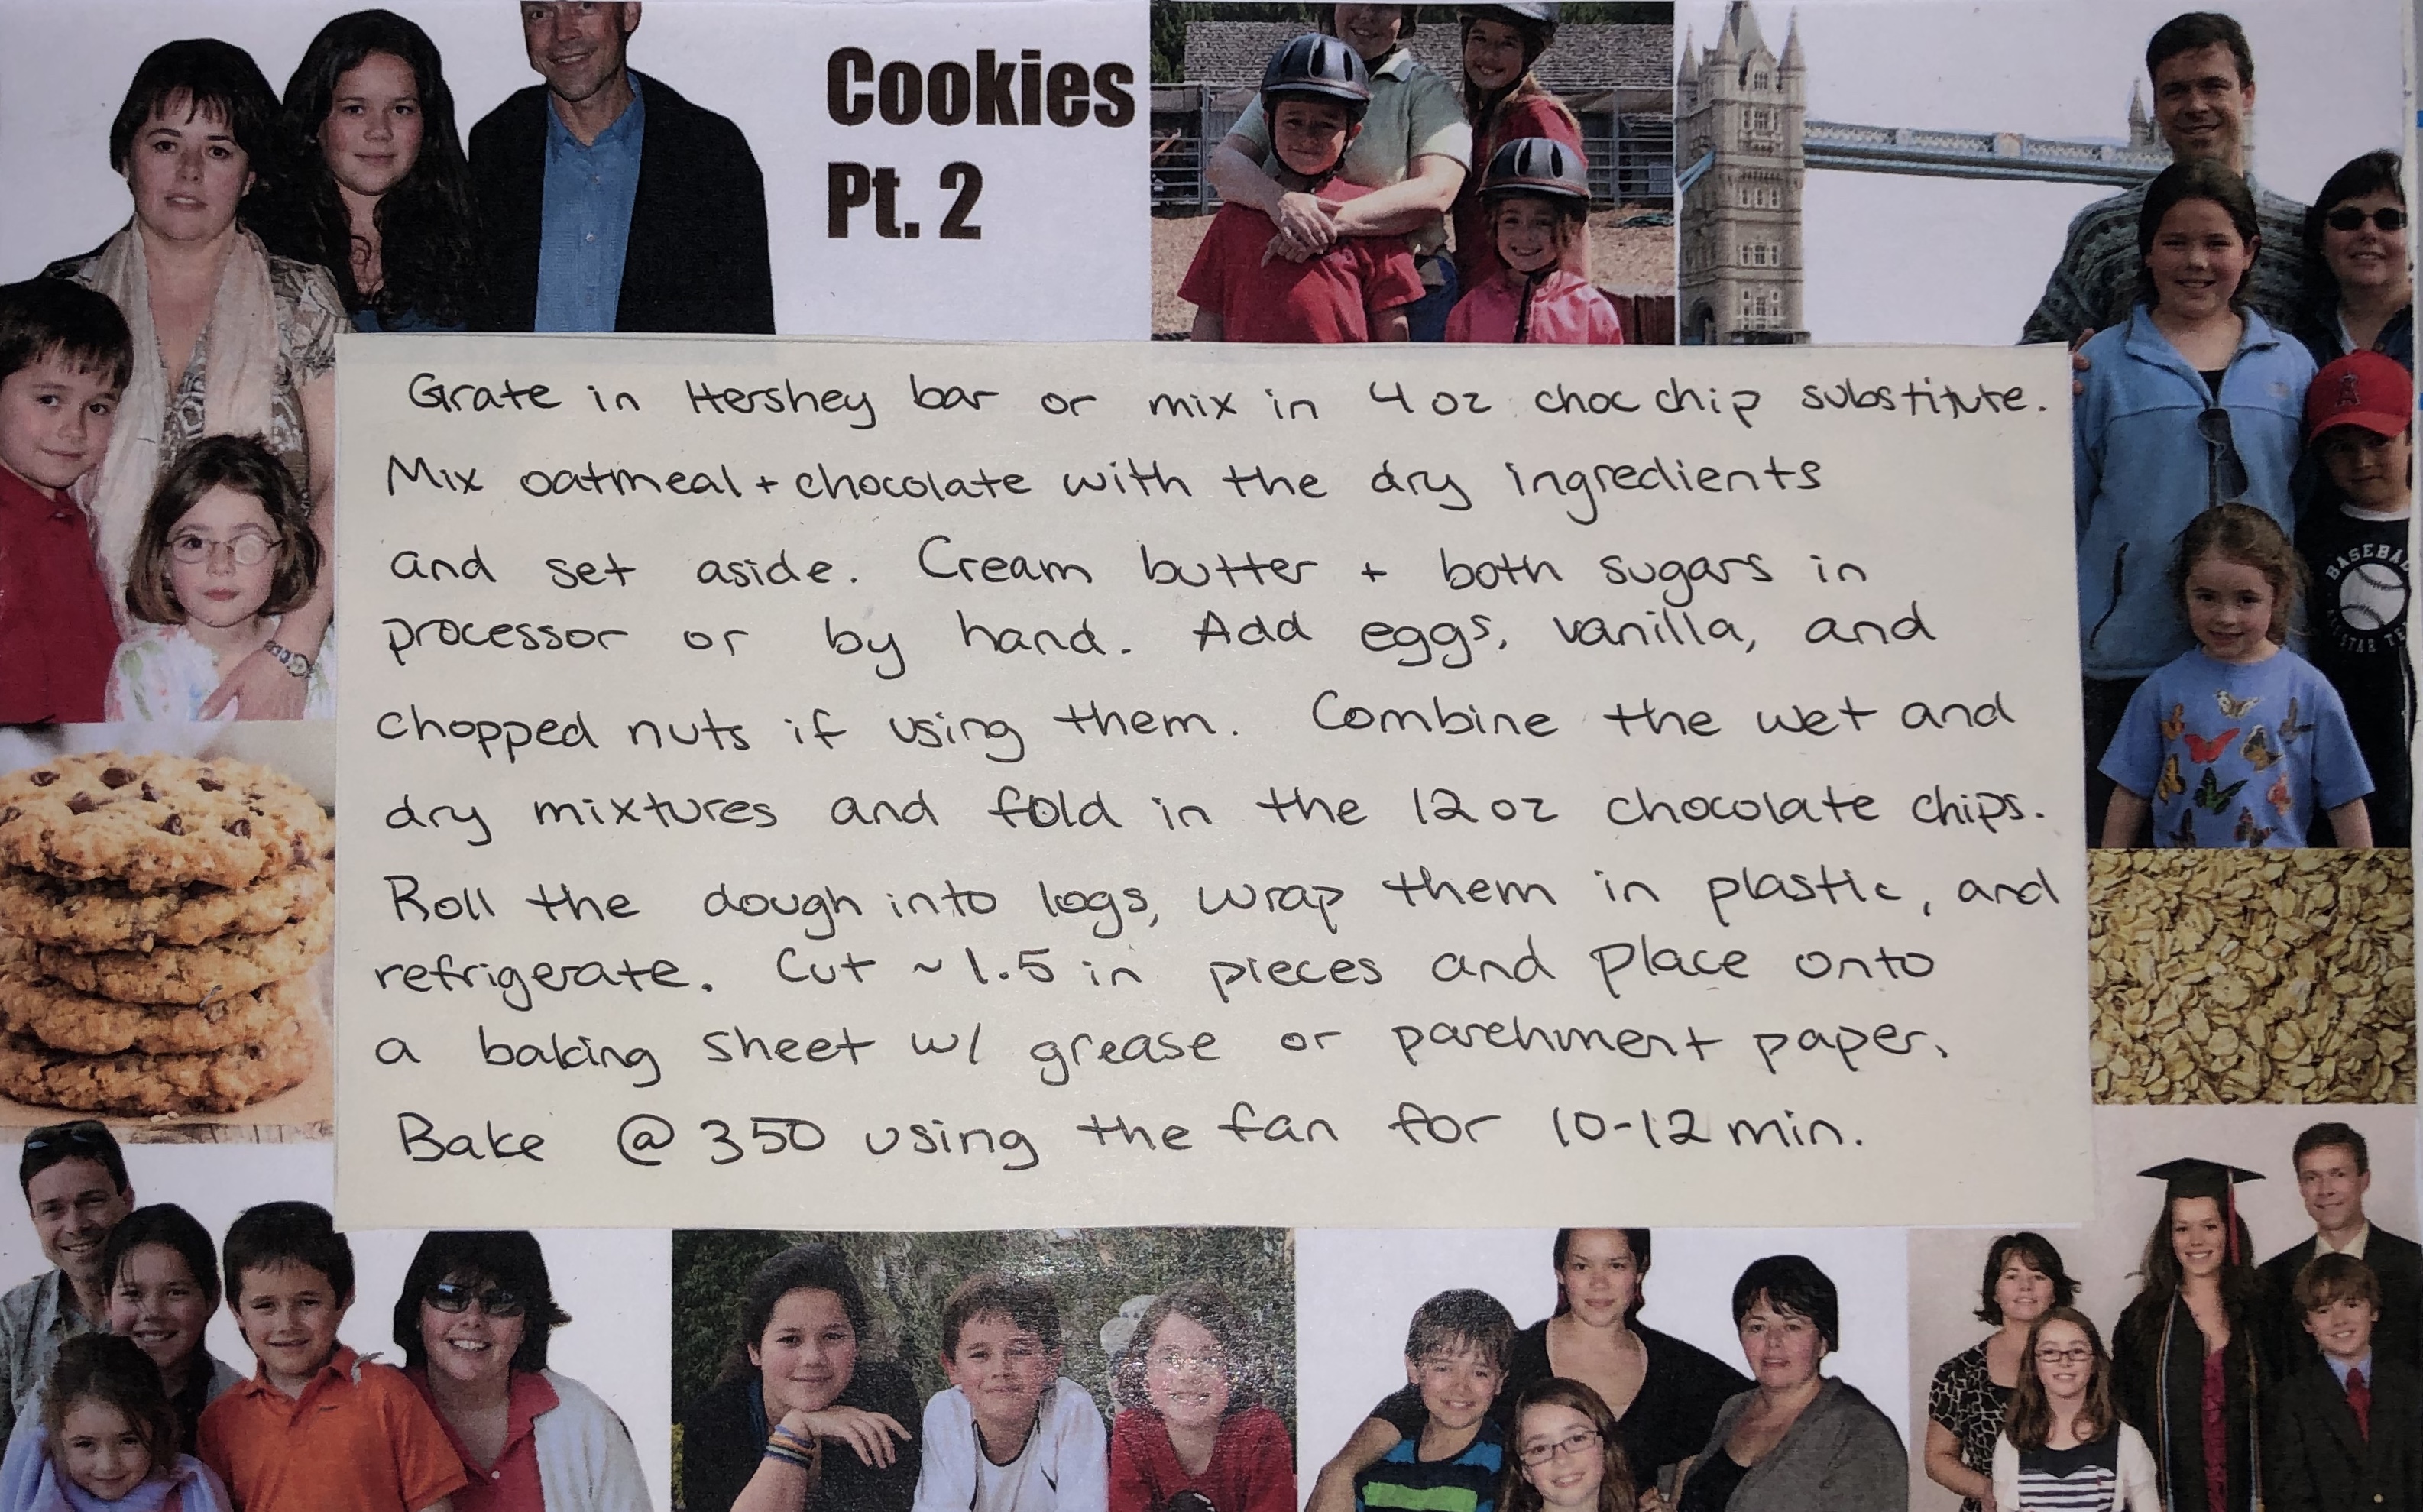 Cookies
Pt. 2
Grate in Hershey bar or mix in 4 oz choc chip substitute.
Mix oatmeal + chocolate with the dry ingredients
and set aside. Cream butter + both sugars in
processor or by hand. Add eggs, vanilla, and
chopped nuts if using them. Combine the wet and
dry mixtures and fold in the 12 oz chocolate chips.
Roll the dough into logs, wrap them in plastic, and
refrigerate. Cut ~ 1.5 in pieces and place onto
a baking sheet w/ grease or parchment paper.
Bake @ 350 using the fan for 10-12 min.
A